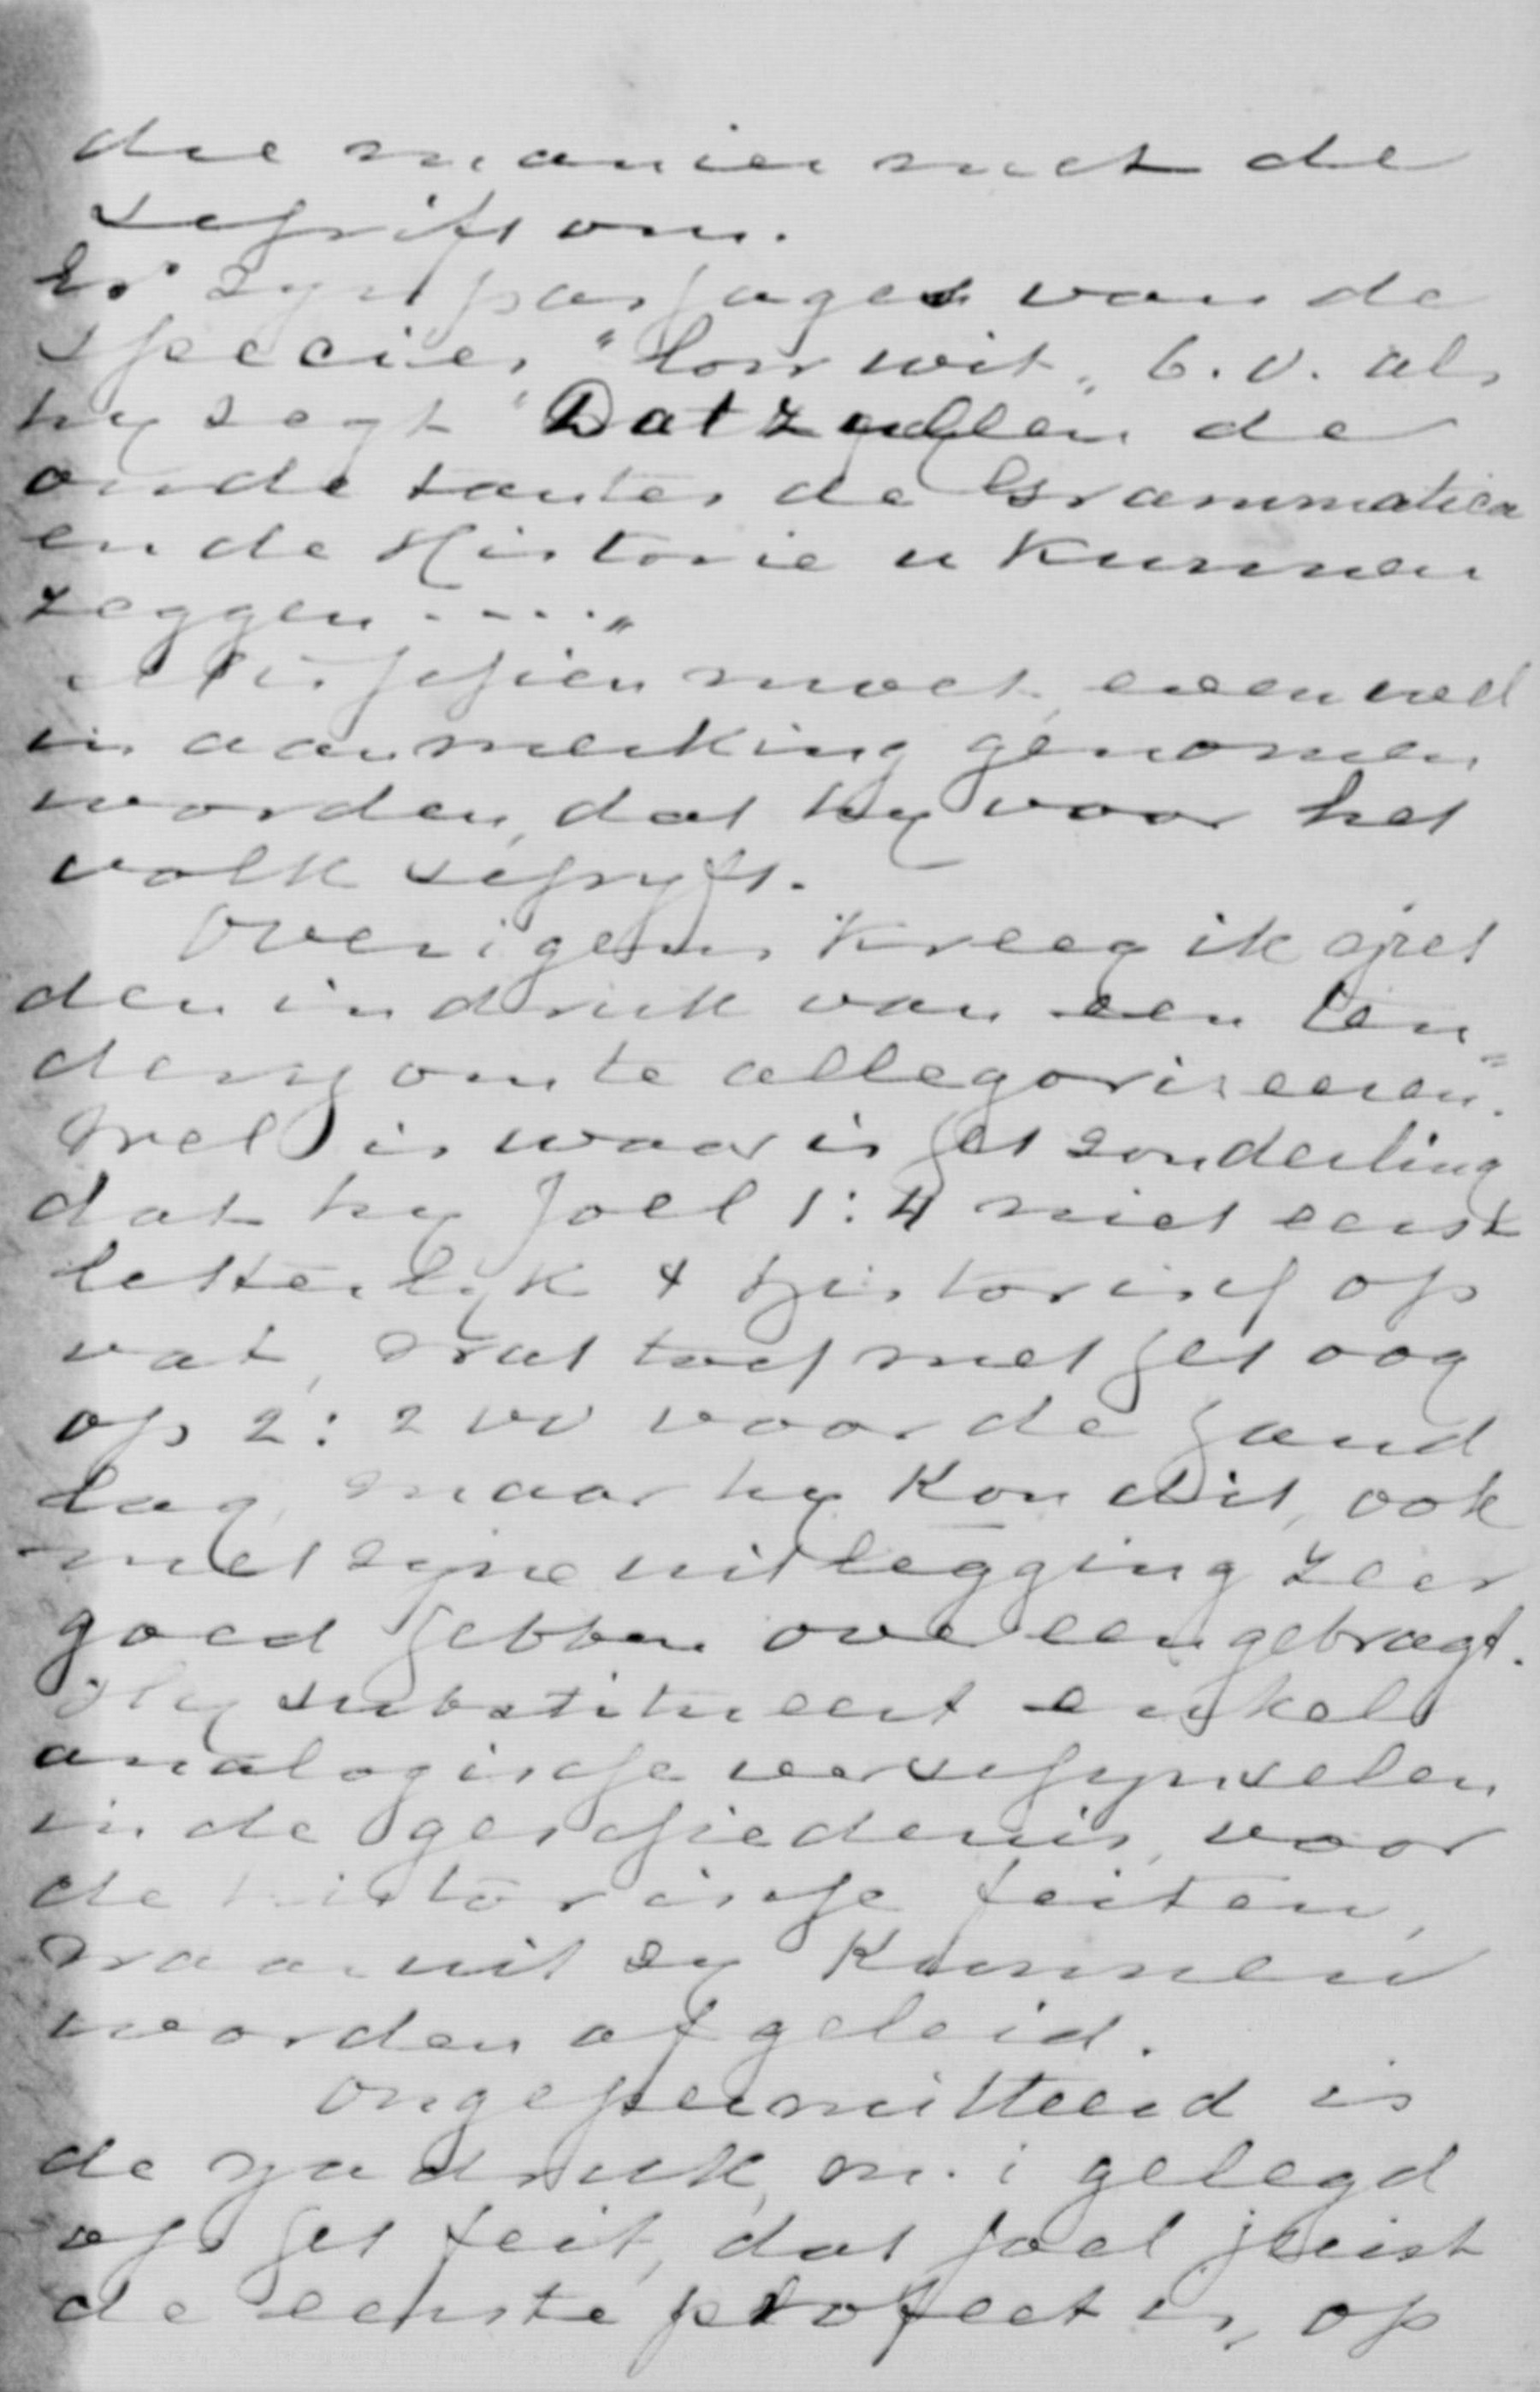 die manier met de
schrift om.
Er zyn passages van de
species "Lourwit" b.v. als
hy zegt "Dat zullen de
oude tantes de Grammatica
en de Historie u kunnen
zeggen ----"
Misschien moet, evenwel
in aanmerking genomen
worden, dat hy voor het
volk schryft.
Overigens kreeg ik niet
den indruk van een ten-
dens om te allegoriseeren.
Wel is waar is het zonderling
dat hy Joel 1:4 niet eerst
letterlyk & historisch op
vat, wat toch met het oog
op 2:2 vv voor de hand
lag, maar hy kon dit, ook
met zyne uitlegging zeer
goed hebben overeengebragt.
Hy substitueert enkel
analogische verschynselen
in de geschiedenis, voor
de historische feiten,
waaruit zy kunnen
worden afgeleid.
Ongepermitteerd is
de nadruk, m.i. gelegd
op het feit, dat Joel juist
de eerste profeet is, op